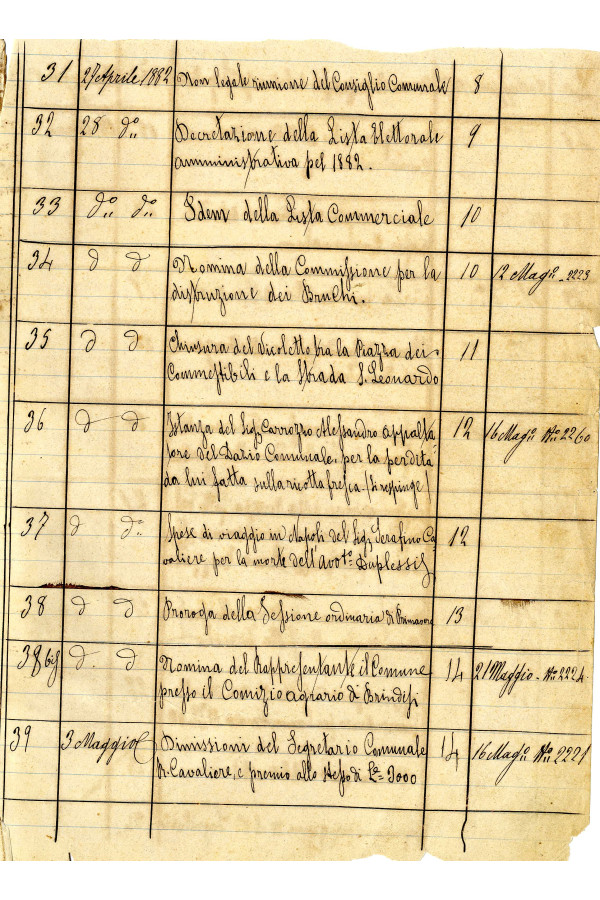 31 27 Aprile 1882 Non legale riunione del Consiglio Comunale 8
32 28 d.o Decretazione della Lista Elettorale 9
amministrativa pel 1882.
33 d.o d.o Idem della Lista Commerciale 10
34 d d Nomina della Commissione per la 10 12 Mag.o - 2223
distruzione dei Bruchi.
35 d d Chiusura del Vicoletto fra la Piazza dei 11
Commestibili e la Strada S. Leonardo
36 d d Istanza del Sig. Carrozzo Alessandro appalta 12 16 Mag.o N.o 2260
tore del Dazio Comunale, per la perdita
da lui fatta sulla ricotta fresca. (Si respinge)
37 d d.o Spese di viaggio in Napoli del Sig. Serafino Ca 12
valiere per la morte dell'Avv.to Duplessis
38 d d Proroga della Sessione ordinaria di Primavera 13
38 bis d. d Nomina del Rappresentante il Comune 14 21 Maggio - N.o 2224.
presso il Comizio agrario di Brindisi
39 3 Maggio Dimissioni del Segretario Comunale 14 16 Mag.o N.o 2221
R. Cavaliere, e premio allo stesso di L.e 3000